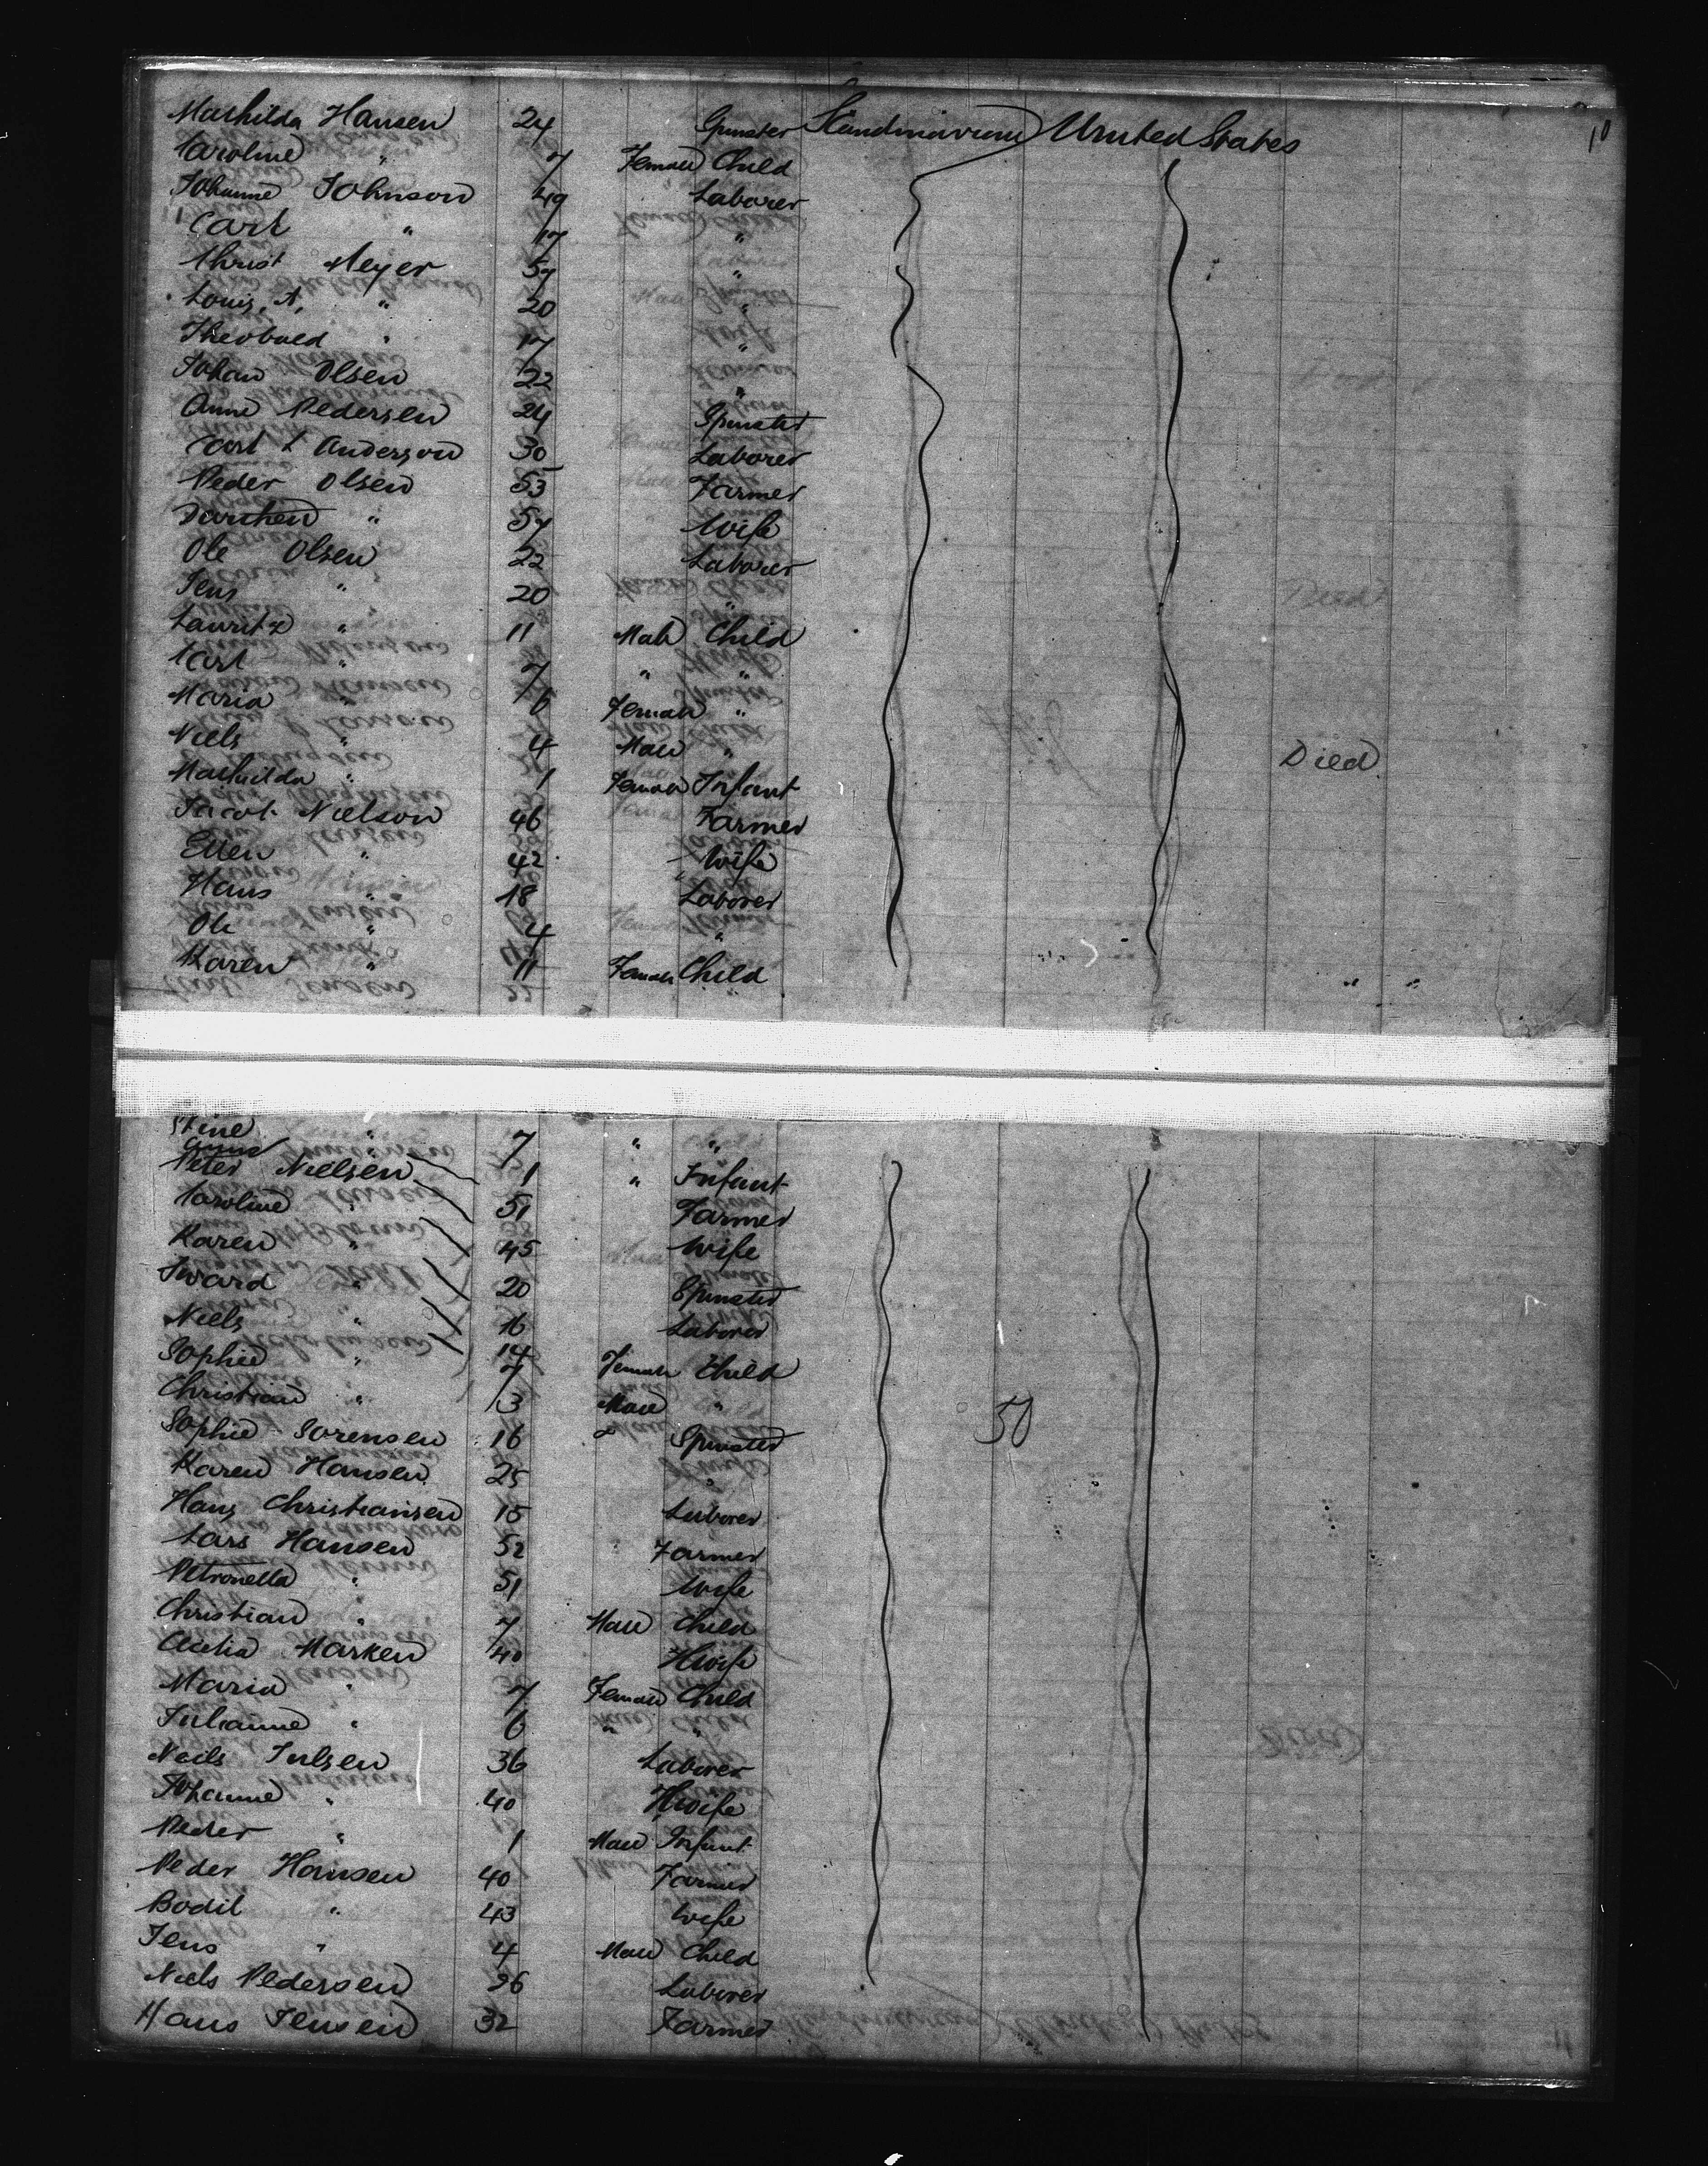 Mathilda Hansen 24 Spinster Skandinavien United States 10
Caroline " 7 Female Child
Johanne Johnson 49 Laborer
Carl " 17 "
Christ Meyer 57 "
Louis, A, " 20 "
Theobald " 17 "
Johan Olsen 22 "
Anne Pedersen 24 Spinster
Carl L Anderson 30 Laborer
Peder Olsen 53 Farmer
Dorthea " 57 Wife
Ole Olsen 22 Laborer
Jens " 20 "
Lauritz " 11 Male Child
Carl " 7 " "
Maria " 6 Female "
Niels " 4 Male " Died
Mathilda " 1 Female Infant
Jacob Nielson 46 Farmer
Ellen " 42 Wife
Hans " 18 Laborer
Ole " 4 "
Karen " 11 Female Child
Stine " 7 " "
Anne
Peter Nielsen 1 " Infant
Caroline " 51 Farmer
Karen " 45 Wife
Sward " 20 Spinster
Niels " 16 Laborer
Sophie " 14 7 Female Child
Christian " 3 Male "
Sophie Sorensen 16 " Spinster 50
Karen Hansen 25 "
Hans Christiansen 15 Laborer
Lars Hansen 52 Farmer
Petronella " 51 Wife
Christian " 7 Male Child
Cecilia Marken 40 Hwife
Maria " 7 Female Child
Julianne " 6 " "
Neils Julsen 36 Laborer
Johanne " 40 Hwife
Peder " 1 Male Infant
Peder Hansen 40 Farmer
Bodil " 43 Wife
Jens " 4 Male Child
Niels Pedersen 26 Laborer
Hans Jensen 32 Farmer